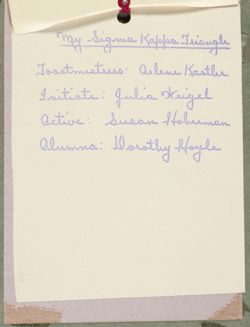 My Sigma Kappa Triangle
Toastmistress: Arlene Kastler
Initiate: Julia Weigel
Active: Susan Hoberman
Alumna: Dorothy Hogle